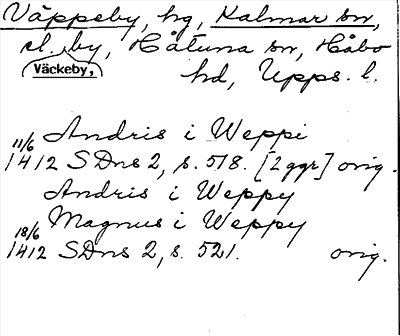 Väppeby, hg, Kalmar sn,
sl. by, Håtuna sn, Håbo
Väckeby,
hd, Upps. l.
Andris i Weppi
11/6
1412 SDns 2, s. 518. [2 ggr] orig.
Andris i Weppy
Magnus i Weppy
18/6
1412 SDns 2, s. 521. orig.